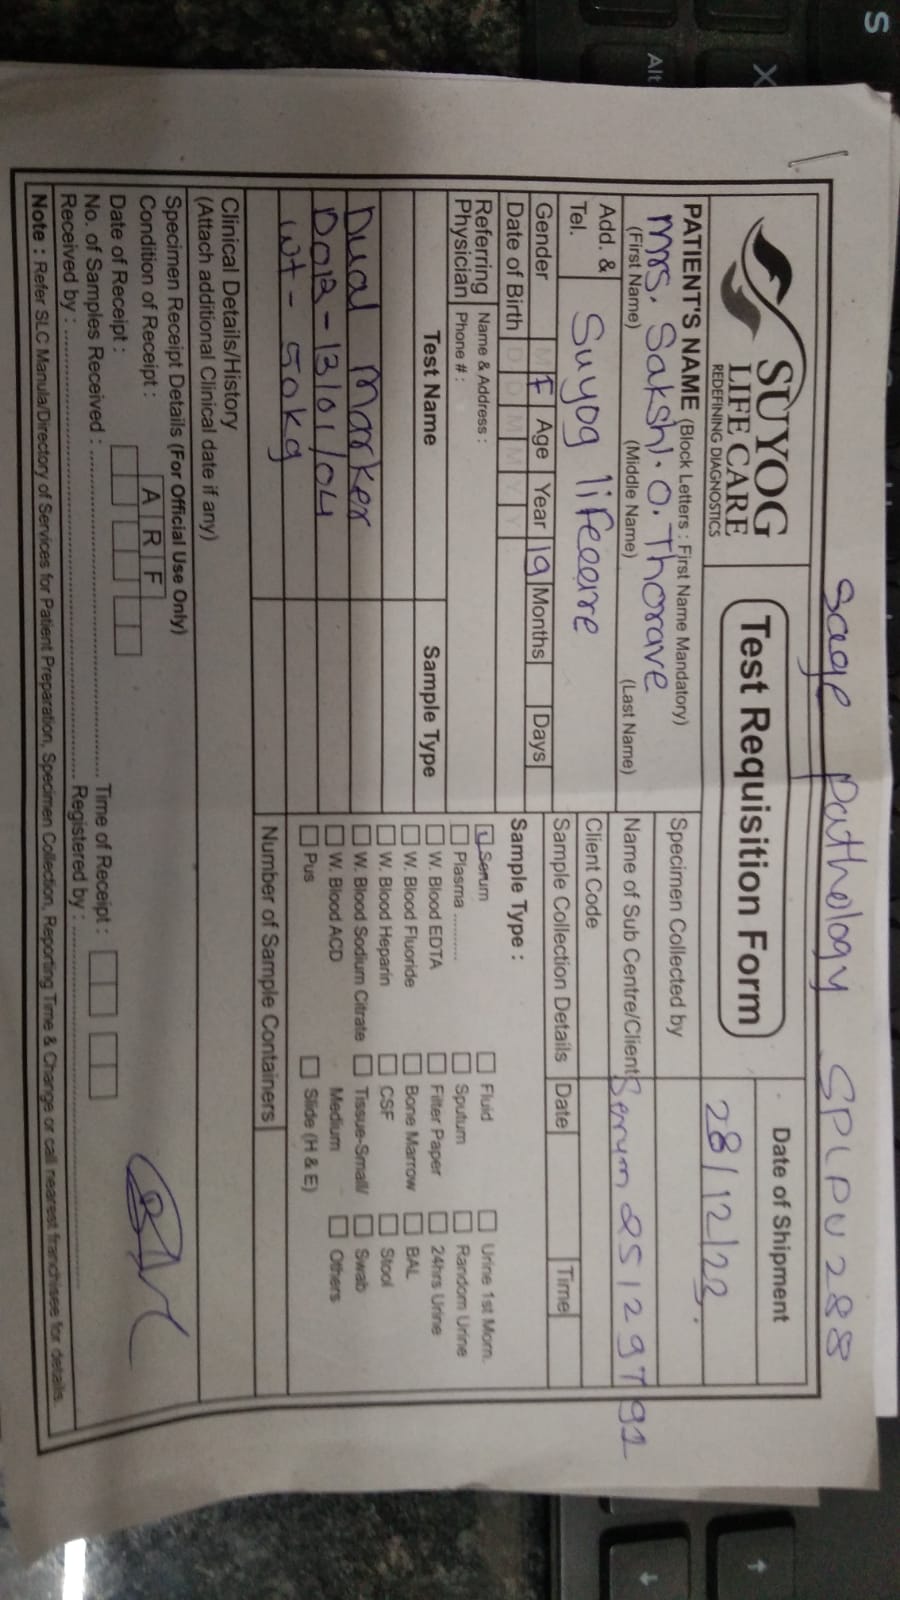 Sage pathology SPLPU288
SUYOG
LIFE CARE
REDEFINING DIAGNOSTICS
Test Requisition Form
Date of Shipment
28/12/23.
PATIENT'S NAME (Block Letters : First Name Mandatory)
Mrs. Sakshi. O. Thorave
(First Name) (Middle Name) (Last Name)
Specimen Collected by
Name of Sub Centre/Client Serum
Add. &
Tel.
Suyog lifecare
Client Code
Gender M F Age Year 19 Months Days
Sample Collection Details Date Time
Date of Birth D D M M Y Y
Referring Physician
Name & Address :
Phone # :
Test Name Sample Type
Dual Marker
DOB - 13/01/04
wt - 50kg
Sample Type :
Serum Fluid Urine 1st Morn.
Plasma .......... Sputum Random Urine
W. Blood EDTA Filter Paper 24hrs Urine
W. Blood Fluoride Bone Marrow BAL
W. Blood Heparin CSF Stool
W. Blood Sodium Citrate Tissue-Small/ Swab
W. Blood ACD Medium Others
Pus Slide (H & E)
Number of Sample Containers
Clinical Details/History
(Attach additional Clinical date if any)
Specimen Receipt Details (For Official Use Only)
Condition of Receipt : A R F
Date of Receipt : Time of Receipt :
No. of Samples Received :
Received by : Registered by :
Note : Refer SLC Manula/Directory of Services for Patient Preparation, Specimen Collection, Reporting Time & Change or call nearest franchisee for details.
S
X
Alt